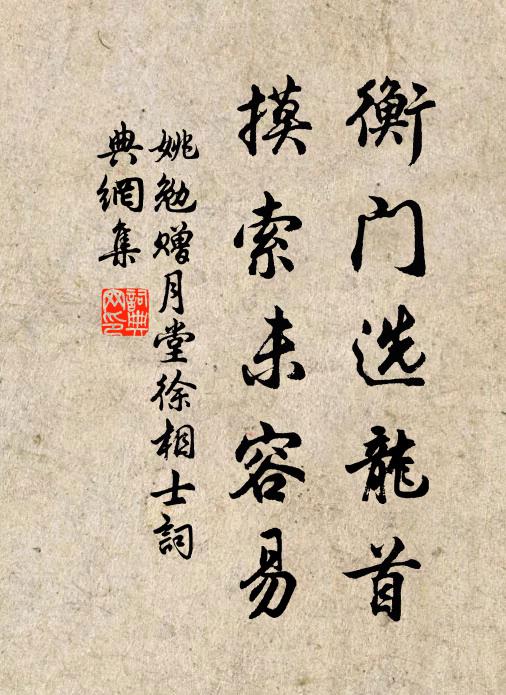 衡门选龍首
摸索未容易
姚勉赠月堂徐相士詞
典網集
詞典网印